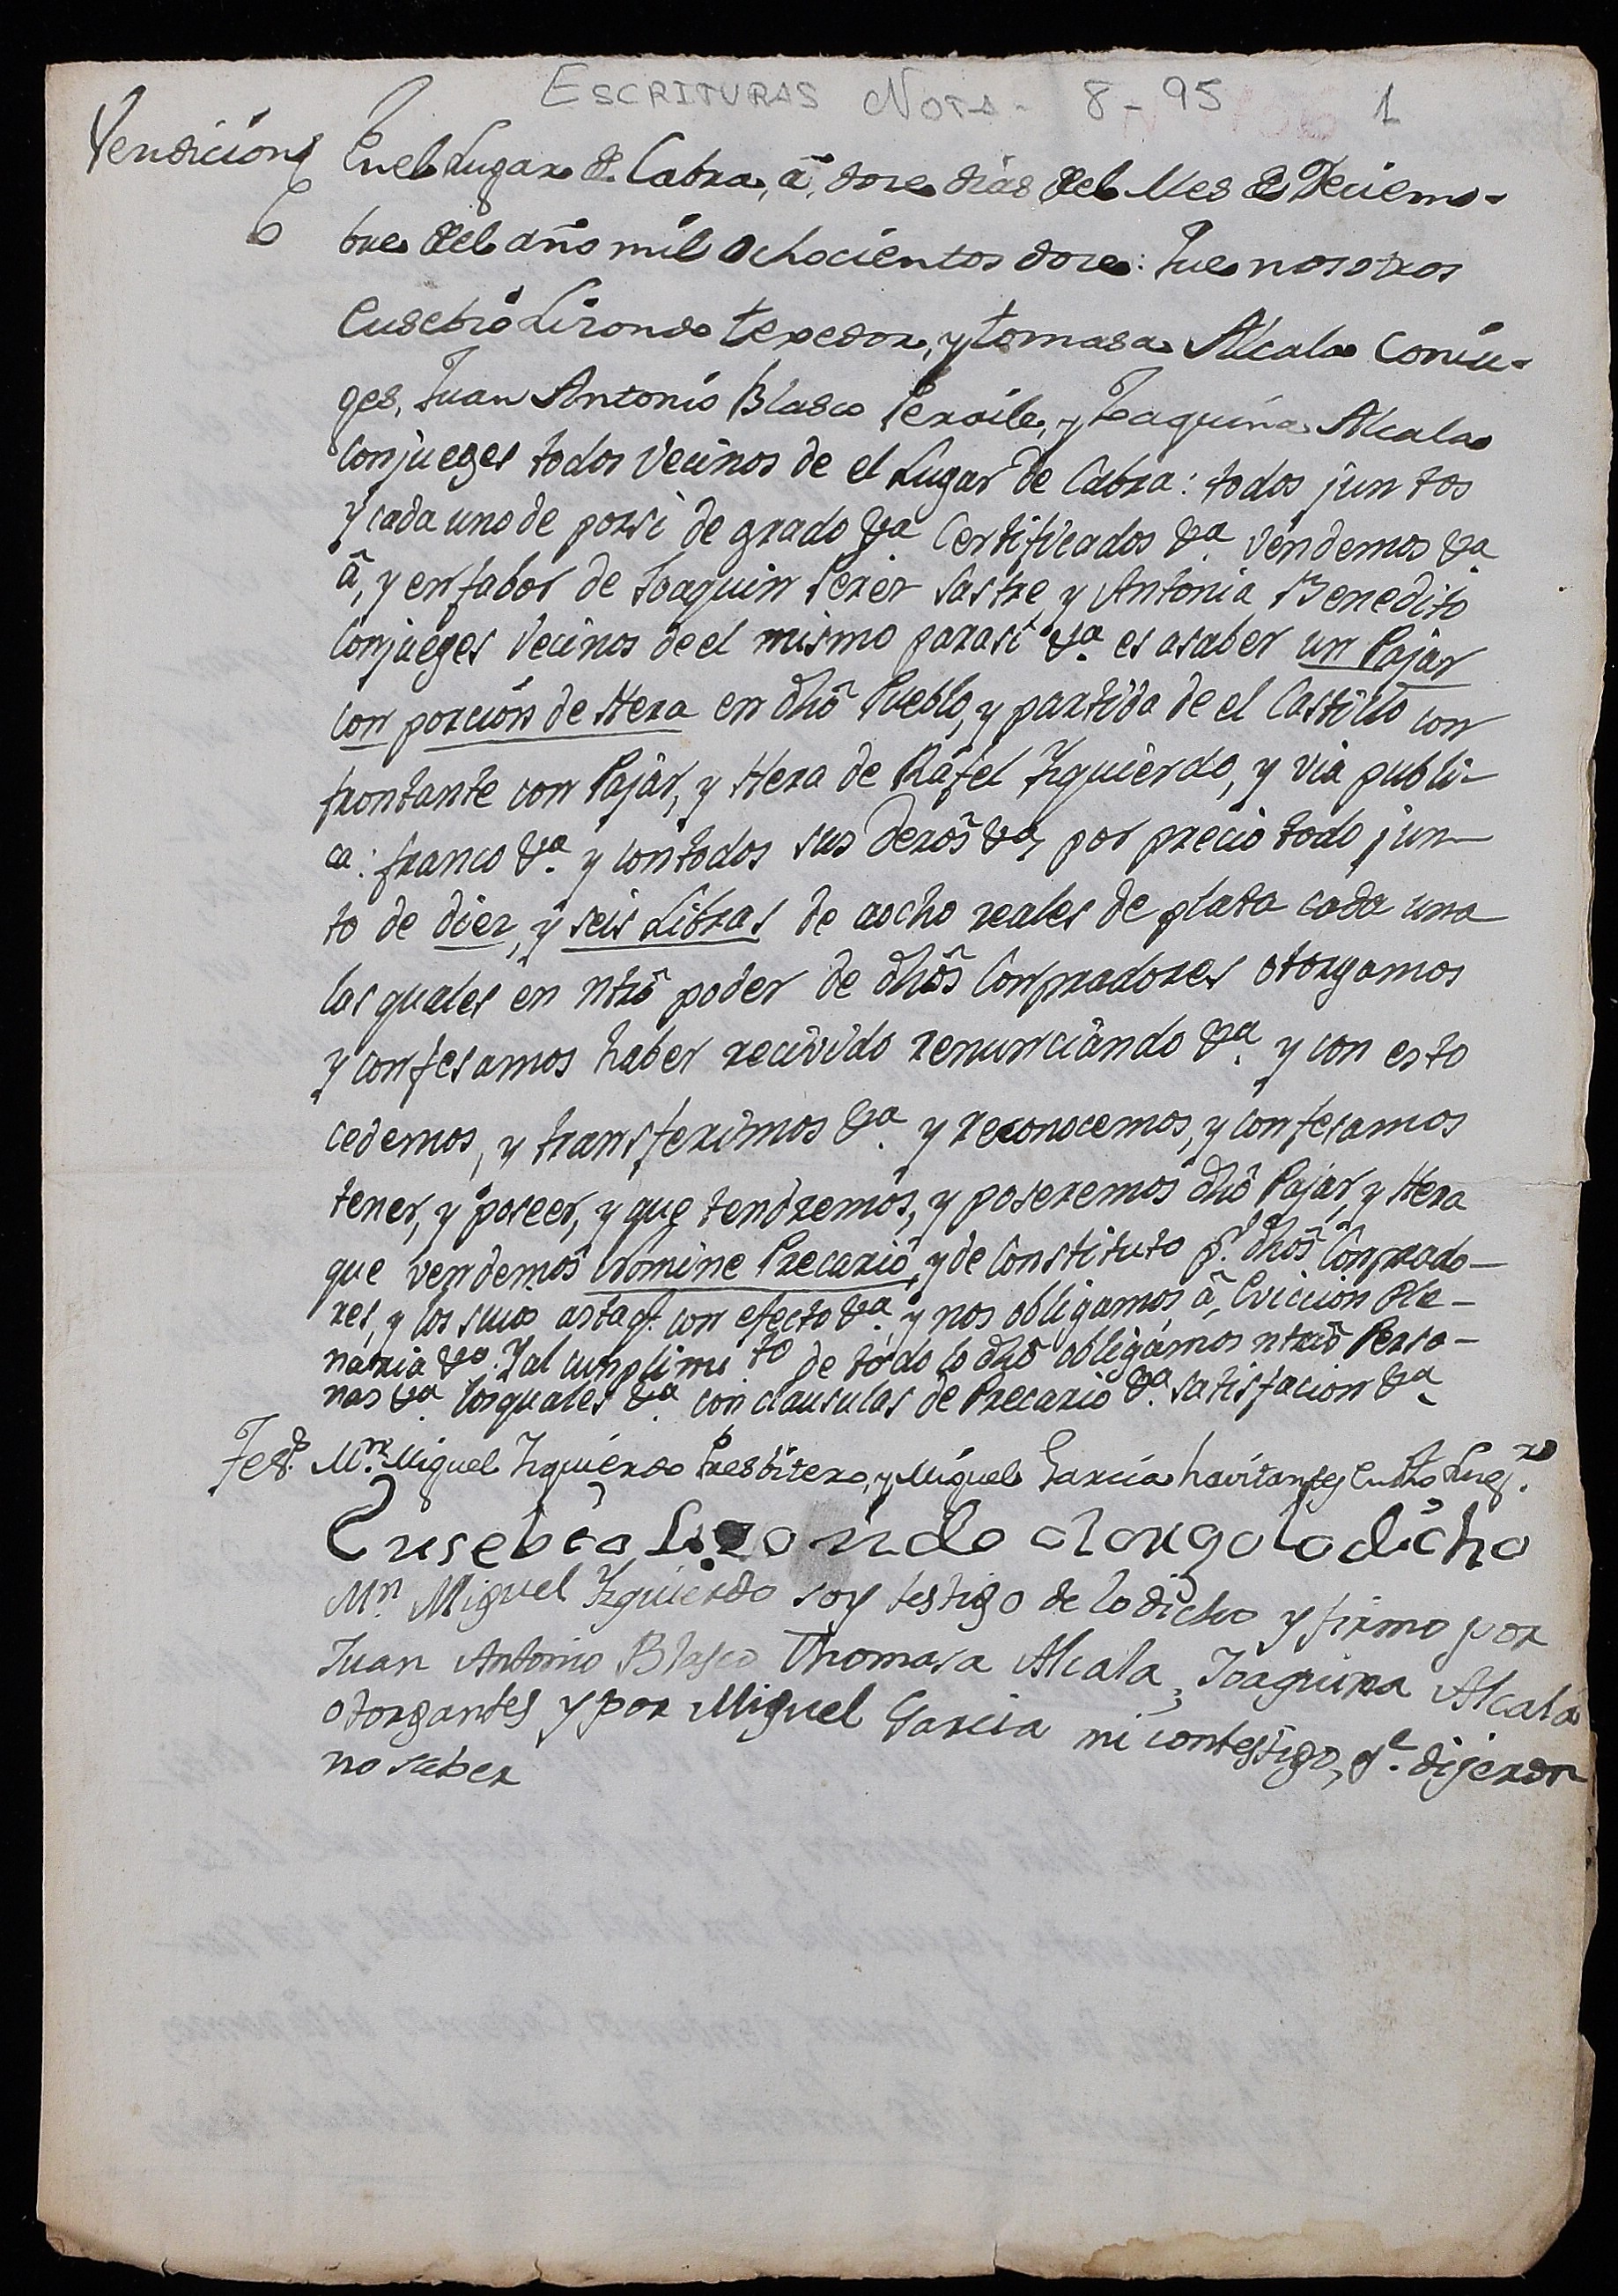 ESCRITURAS NOTA - 8-95 1
Vendicion
En el Lugar de Cabra, â, doze dias del Mes de Deciem-
bre del año mil ochocientos doze: Que nosotros
Eusebio Lizondo texedor, y tomasa Alcala Coniu-
ges, Juan Antonio Blasco Peraile, y Joaquina Alcala
Conjueges todos Vecinos de el Lugar de Cabra: todos juntos
y cada uno de por si de grado &a Certificados &a. vendemos &a
â, y en fabor de Joaquin Perez Sastre, y Antonia Benedito
Conjueges Vecinos de el mismo para si &a. es a saber un Pajar
con porcion de Hera en dhõ Pueblo, y partida de el Castillo con
frontante con Pajar, y Hera de Rafel Izquierdo, y via publi-
ca: franco &a. y con todos sus derõs &a, por precio todo jun-
to de diez, y seis Libras de aocho reales de plata cada una
las quales en ntrõ poder de dhõs Conpradores otorgamos
y confesamos haber recivido renunciando &a. y con esto
cedemos, y transferimos &a. y reconocemos, y confesamos
tener, y poseer, y que tendremos, y poseremos dhõ Pajar, y Hera
que vendemos Nomine Precario, y de Constituto pr. dhõs Conprado-
res, y los suios asta q. con efecto &a. y nos obligamos â, Eviccion Ple-
naria &a. Y al cumplimi.to de todo lo dhõ obligamos ntras Perso-
nas &a. los quales &a. con clausulas de Precario &a. satisfacion &a.
Tes.s Mn. Miguel Izquierdo Presbitero, y Miguel Garcia havitantes en dho Lugr.
Eusebio Lizondo otorgo lo dicho
Mn. Miguel Izquierdo soy testigo de lo dicho y firmo por
Juan Antonio Blasco Thomasa Alcala, Joaquina Alcala
otorgantes y por Miguel Garcia mi contestigo, qe. dijeron
no saber